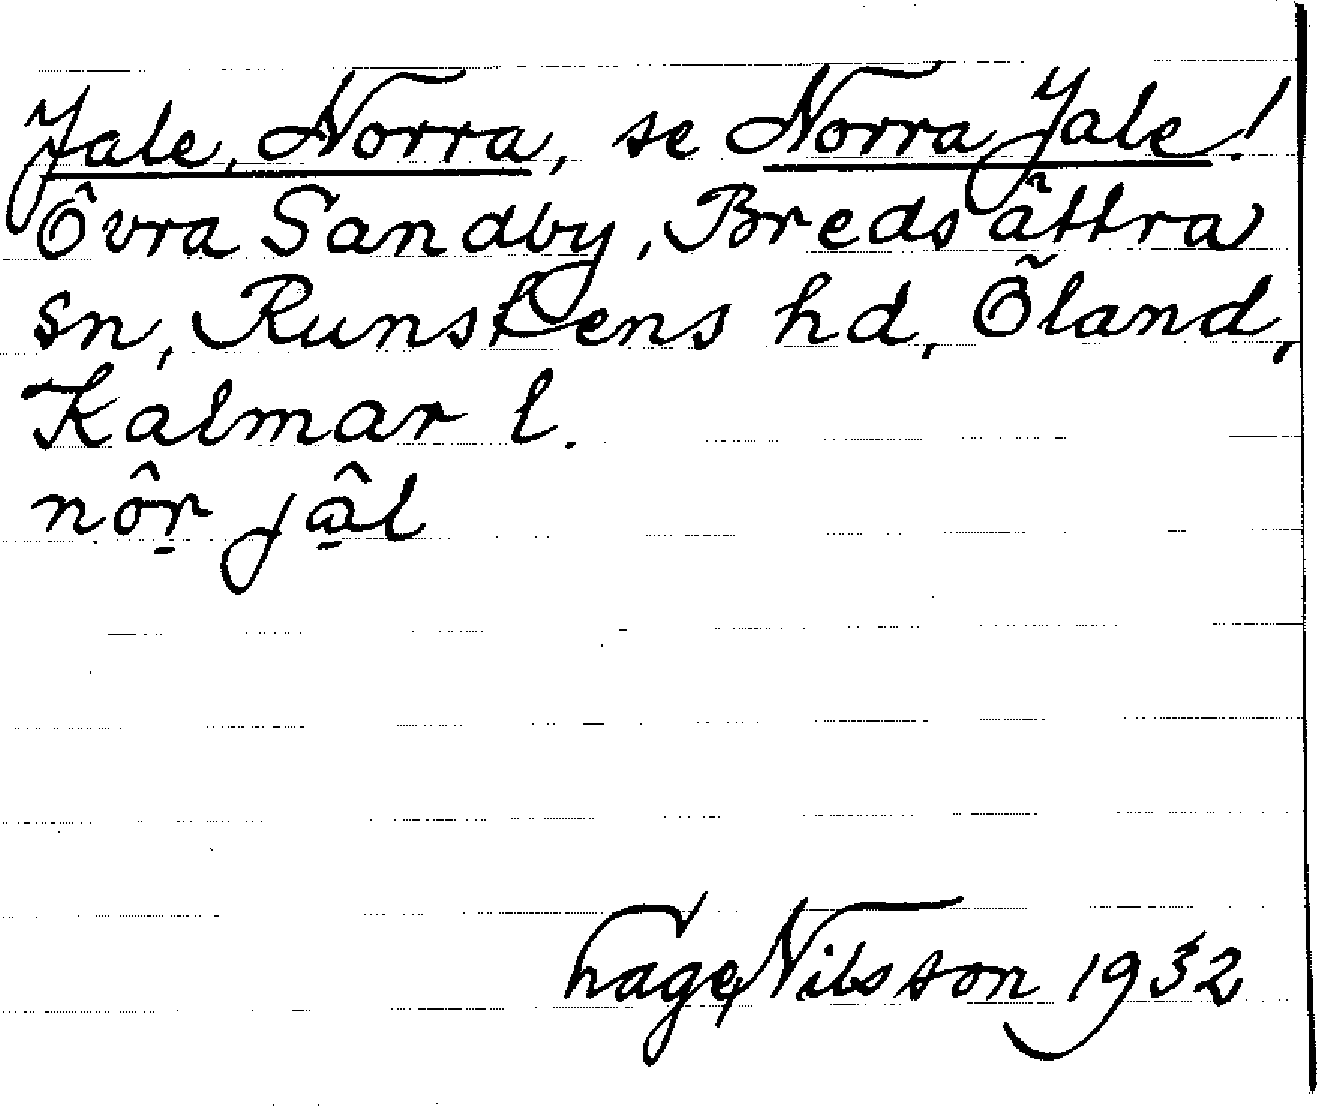 Jale, Norra, se Norra Jale!
Övra Sandby, Bredsättra
sn, Runstens hd, Öland,
Kalmar l.
nôr̠ jâ̠l
Tage Nilsson 1932